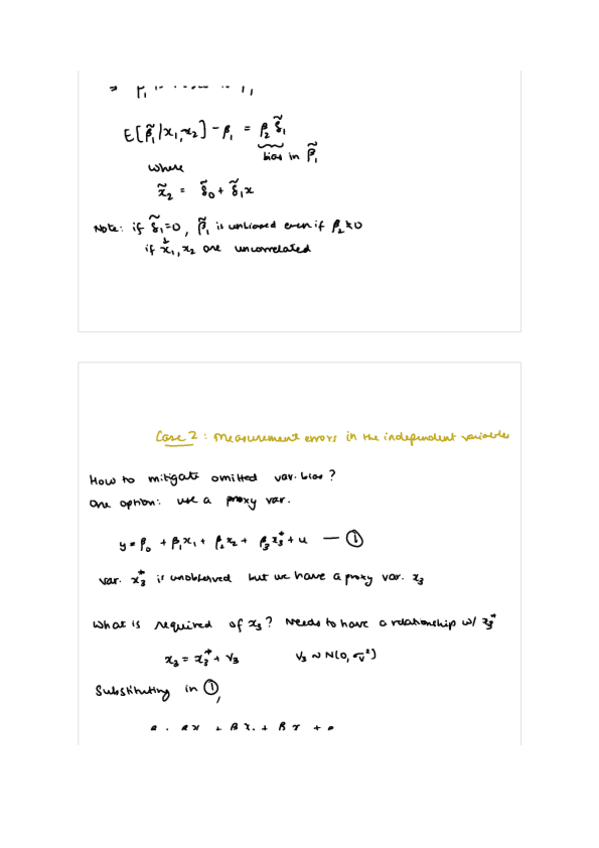 E[β̃₁|x₁,x₂] - β₁ = β₂ δ̃₁
bias in β̃₁
where
x̃₂ = δ̃₀ + δ̃₁x
Note: if δ̃₁=0, β̃₁ is unbiased even if β₂≠0
↓
if x₁, x₂ are uncorrelated
Case 2: Measurement errors in the independent variables
How to mitigate omitted var. bias?
One option: use a proxy var.
y = β₀ + β₁x₁ + β₂x₂ + β₃x₃* + u — ①
var. x₃* is unobserved but we have a proxy var. x₃
What is required of x₃? Needs to have a relationship w/ x₃*
x₃ = x₃* + v₃ v₃ ~ N(0, σᵥ²)
Substituting in ①,